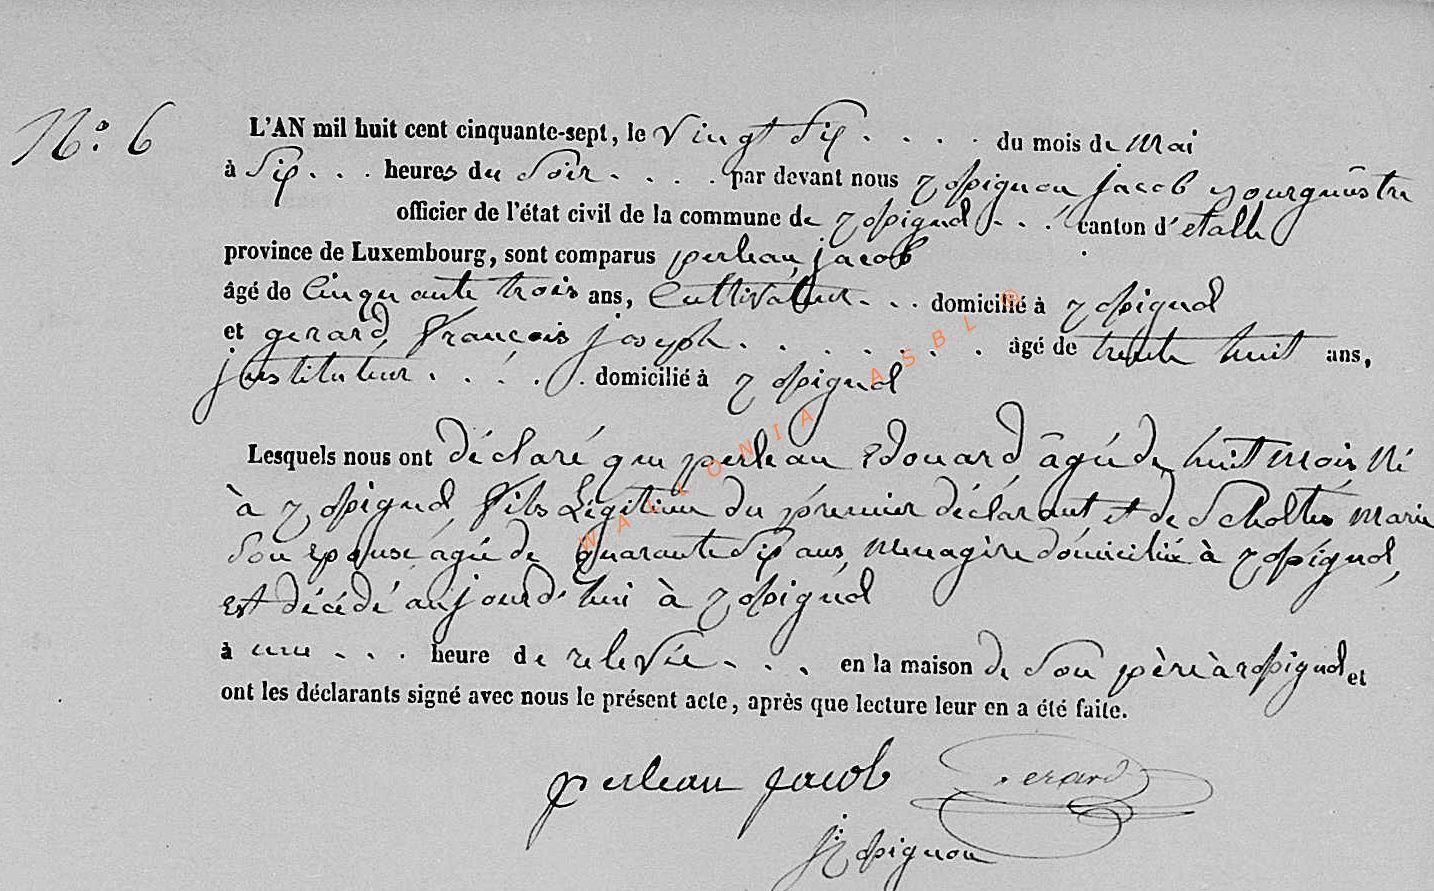 N.º 6
L'AN mil huit cent cinquante-sept, le vingt six . . . . du mois de mai
à six . . . heures du soir . . . . par devant nous jacob
officier de l'état civil de la commune de . . . canton d'étalle
province de Luxembourg, sont comparus perleau jacob
âgé de Cinquante trois ans, Cultivateur . . . domicilié à
et gerard françois joseph . . . . . . . . âgé de trente huit ans,
instituteur . . . . . domicilié à
WALLONIA ASBL ®
Lesquels nous ont déclaré que perleau Edouard âgé de huit mois né
à fils Légitime du premier déclarant, et de Scholtes marie
Son épouse agée de quarante six ans, ménagère domiciliée à
Est décédé aujourd'hui à
à une . . . heure de relevée . . . en la maison de Son père à et
ont les déclarants signé avec nous le présent acte, après que lecture leur en a été faite.
perleau jacob Gerard